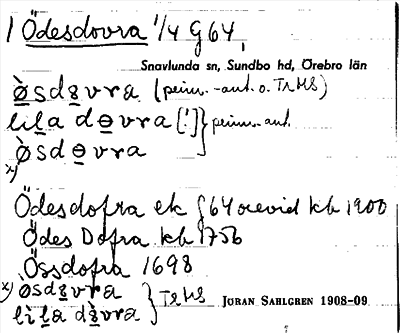 1 Ödesdovra 1/4 G64,
Snavlunda sn, Sundbo hd, Örebro län
ø̀sdȣvra (peim. -ant. o. TrHS)
lila dɵvra [!] } peim. ant.
x) ø̀sdɵvra
Ödesdofra ek §64 kb 1900
Ödes Dofra kb 1756
Össdofra 1698
x) ø̀sdȣvra } TrHS
lila dȣ̀vra
JÖRAN SAHLGREN 1908-09